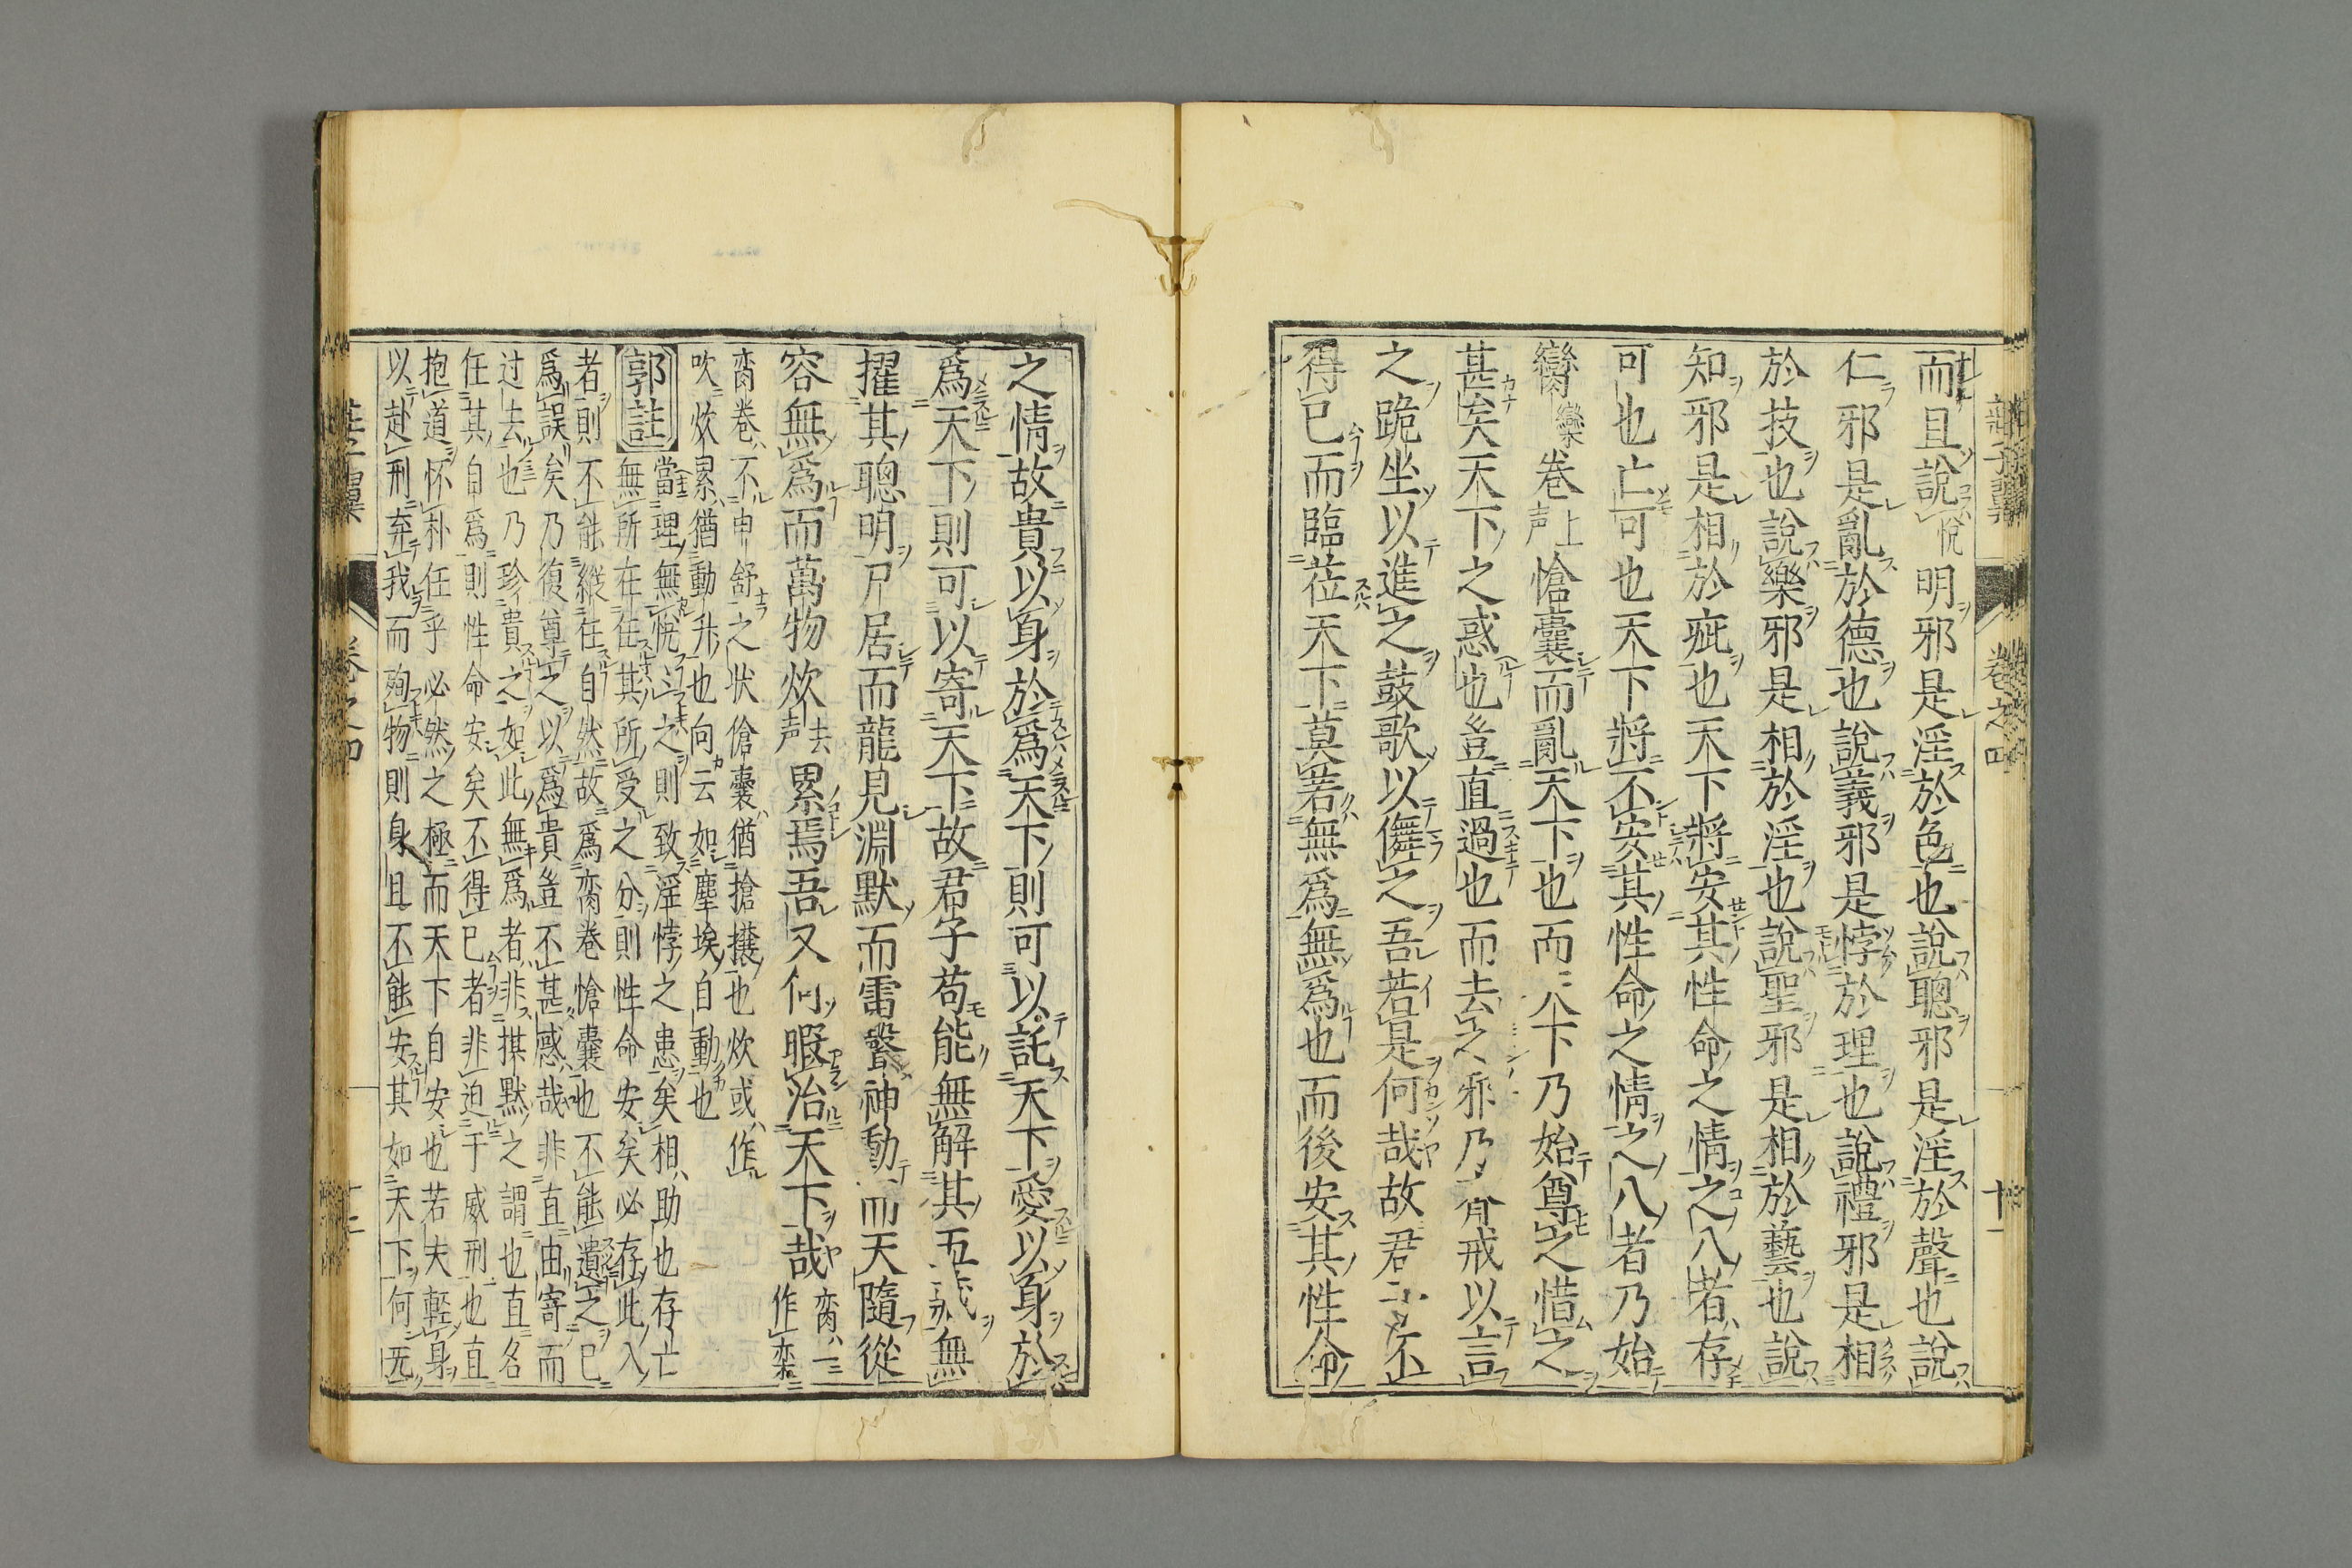 而且說悅明邪是淫於色也說聰邪是淫於聲也說
仁邪是亂於德也說義邪是悖於理也說禮邪是相
於技也說樂邪是相於淫也說聖邪是相於藝也說
知邪是相於疵也天下將安其性命之情之八者存
可也亡可也天下將不安其性命之情之八者乃始
臠臠卷上声愴囊而亂天下也而天下乃始尊之惜之
甚矣天下之惑也豈直過也而去之邪乃齊戒以言
之跪坐以進之鼓歌以儛之吾若是何哉故君子不
得已而臨莅天下莫若無爲無爲也而後安其性命
之情故貴以身於爲天下則可以託天下愛以身於
爲天下則可以寄天下故君子苟能無解其五藏無
擢其聰明尸居而龍見淵默而雷聲神動而天隨從
容無爲而萬物炊去声累焉吾又何暇治天下哉臠一作欒
臠卷不申舒之状傖囊猶搶攘也炊或作
吹炊累猶動升也向云如塵埃自動也
郭註
當理無悅悅之則致淫悖之患矣相助也存亡
無所在任其所受之分則性命安矣必存此八
者則不能縱任自然故爲臠卷愴囊也不能遺之已
爲誤矣乃復尊之以爲貴豈不甚惑哉非直由寄而
过去也乃珍貴之如此無爲者非拱默之謂也直名
任其自爲則性命安矣不得已者非迫于威刑也直
抱道怀朴任乎必然之極而天下自安也若夫輕身
以赴刑弃我而殉物則身且不能安其如天下何无
莊子翼
卷之四
十一
卷之四
十二